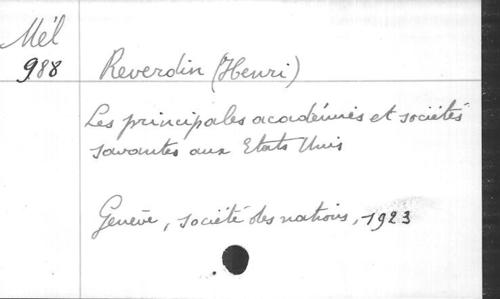 Mél
988
Reverdin (Henri)
Les principales académies et sociétés
savantes aux Etats Unis
Genève, société des nations, 1923